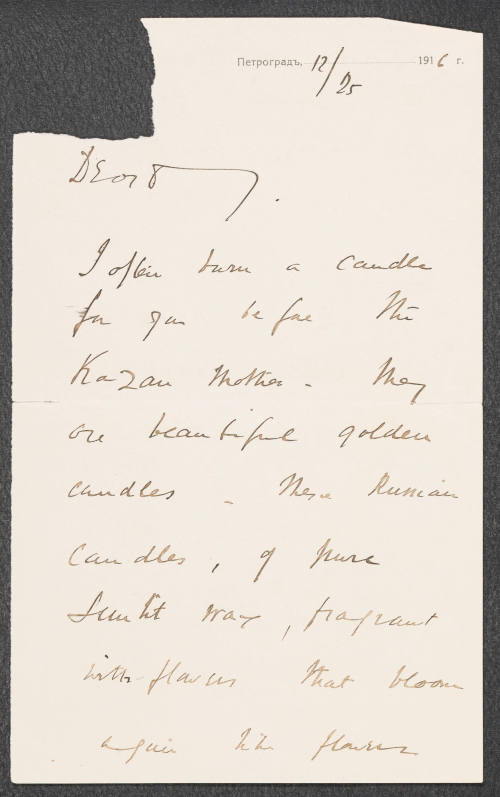 Петроградъ, 12/25 1916 г.
Dear
I often burn a candle
for you before the
Kazan Mother - They
are beautiful golden
candles - These Russian
candles, of pure
Sunlit wax, fragrant
with flowers that bloom
again like flowers